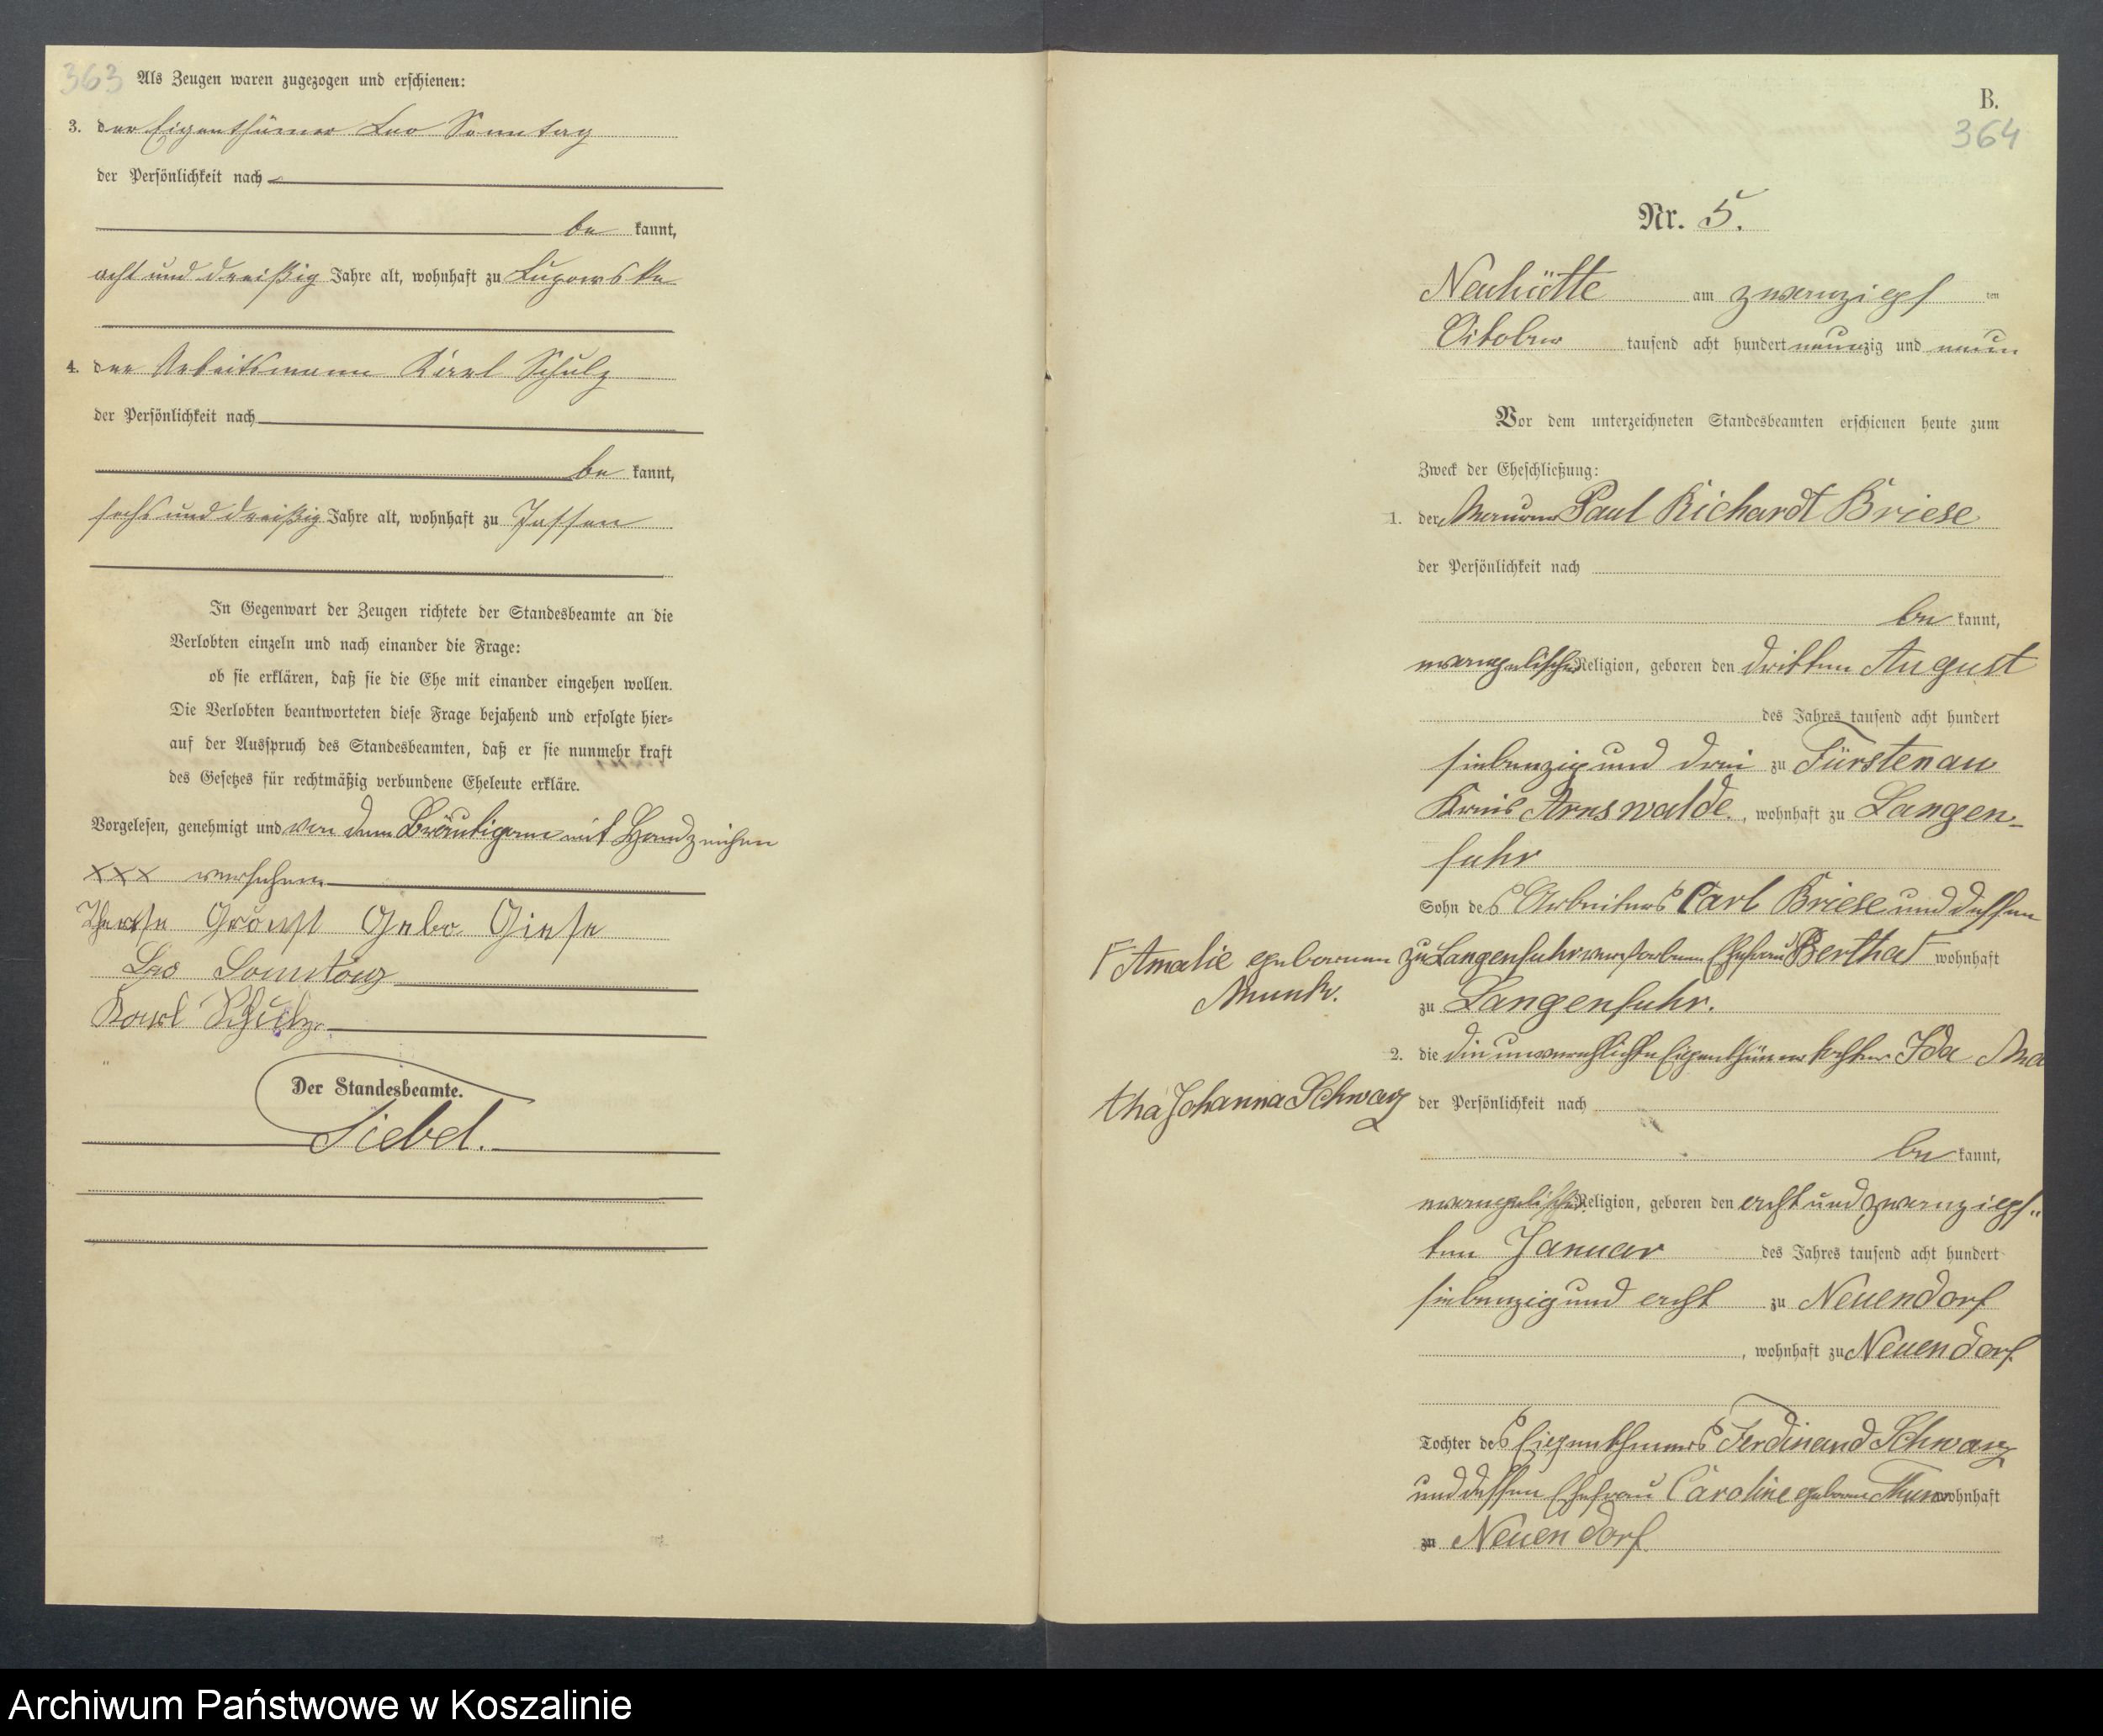 363 Als Zeugen waren zugezogen und erschienen:
3. der Eigenthümer Leo Sonntag
der Persönlichkeit nach
be kannt,
acht und dreißig Jahre alt, wohnhaft zu Lupowske
4. der Arbeitsmann Karl Schulz
der Persönlichkeit nach
be kannt,
sechs und dreißig Jahre alt, wohnhaft zu Jassen
In Gegenwart der Zeugen richtete der Standesbeamte an die
Verlobten einzeln und nach einander die Frage:
ob sie erklären, daß sie die Ehe mit einander eingehen wollen.
Die Verlobten beantworteten diese Frage bejahend und erfolgte hier-
auf der Ausspruch des Standesbeamten, daß er sie nunmehr kraft
des Gesetzes für rechtmäßig verbundene Eheleute erkläre.
Vorgelesen, genehmigt und von dem Bräutigam mit Handzeichen
XXX versehen.
Gebo Giese
Leo Sonntag
Karl Schulz
Der Standesbeamte.
Siebel.
B.
364
Nr. 5.
Neuhütte am zwanzigs ten
Oktober tausend acht hundert neunzig und neun
Vor dem unterzeichneten Standesbeamten erschienen heute zum
Zweck der Eheschließung:
1. der Maurer Paul Richardt Briese
der Persönlichkeit nach
be kannt,
evangelischer Religion, geboren den dritten August
des Jahres tausend acht hundert
siebenzig und drei zu Fürstenau
Kreis Arnswalde, wohnhaft zu Langen-
fuhr
Sohn des Arbeiters Carl Briese und dessen
zu Langenfuhr verstorbenen Ehefrau Bertha Γ wohnhaft
Γ Amalie geborenen
Munk.
zu Langenfuhr.
2. die die unverehelichte Eigenthümertochter Ida Ma
tha Johanna Schwarz
der Persönlichkeit nach
be kannt,
evangelischer Religion, geboren den acht und zwanzigs-
ten Januar des Jahres tausend acht hundert
siebenzig und acht zu Neuendorf
, wohnhaft zu Neuendorf
Tochter des Eigenthümers Ferdinand Schwarz
und dessen Ehefrau Caroline geboren wohnhaft
zu Neuendorf
Archiwum Państwowe w Koszalinie